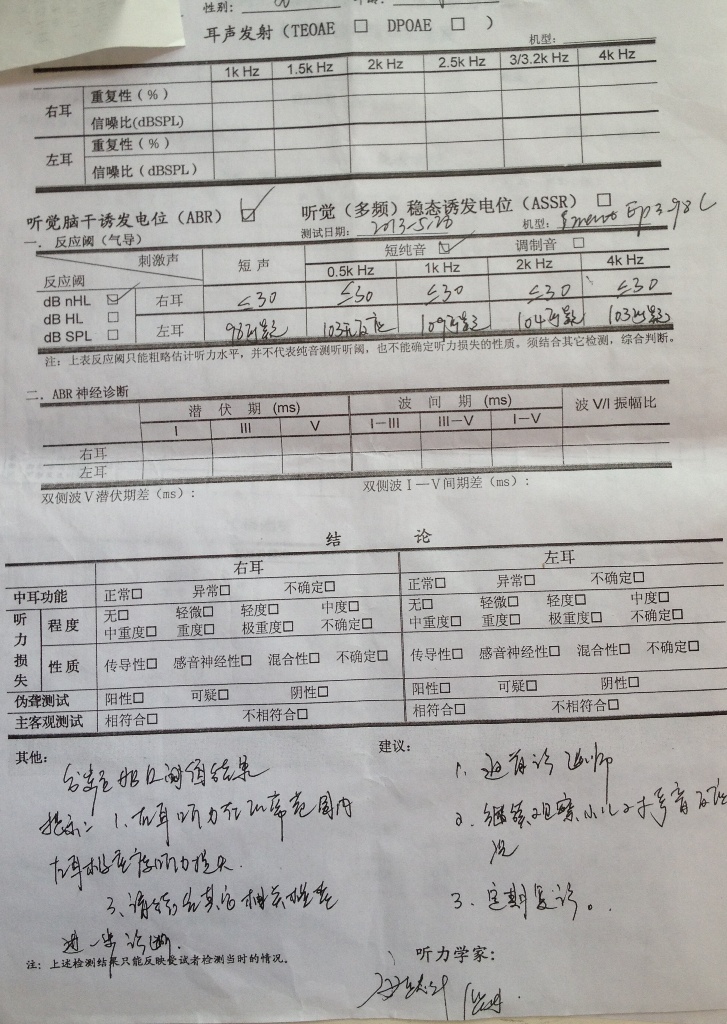 性别：
耳声发射（TEOAE □ DPOAE □ ）
机型：
1k Hz 1.5k Hz 2k Hz 2.5k Hz 3/3.2k Hz 4k Hz
右耳 重复性（％）
信噪比(dBSPL)
左耳 重复性（％）
信噪比（dBSPL)
听觉脑干诱发电位（ABR） ☑ 听觉（多频）稳态诱发电位（ASSR） □
一．反应阈（气导） 测试日期：2013-5.28 机型：
刺激声 短声 短纯音 ☑ 调制音 □
反应阈 0.5k Hz 1k Hz 2k Hz 4k Hz
dB nHL ☑ 右耳 ≤30 ≤30 ≤30 ≤30 ≤30
dB HL □
dB SPL □ 左耳
注：上表反应阈只能粗略估计听力水平，并不代表纯音测听听阈，也不能确定听力损失的性质。须结合其它检测，综合判断。
二．ABR 神经诊断
潜伏期 (ms) 波间期 (ms) 波 V/I 振幅比
I III V I－III III－V I－V
右耳
左耳
双侧波Ⅴ潜伏期差（ms）： 双侧波Ⅰ—Ⅴ间期差（ms）：
结论
右耳 左耳
中耳功能 正常□ 异常□ 不确定□ 正常□ 异常□ 不确定□
听力损失 程度 无□ 轻微□ 轻度□ 中度□ 无□ 轻微□ 轻度□ 中度□
中重度□ 重度□ 极重度□ 不确定□ 中重度□ 重度□ 极重度□ 不确定□
性质 传导性□ 感音神经性□ 混合性□ 不确定□ 传导性□ 感音神经性□ 混合性□ 不确定□
伪聋测试 阳性□ 可疑□ 阴性□ 阳性□ 可疑□ 阴性□
主客观测试 相符合□ 不相符合□ 相符合□ 不相符合□
其他：
结果
提示：1、右耳听力在正常范围内
左耳极重度听力损失.
3、请结合其它相关检查
进一步诊断.
注：上述检测结果只能反映受试者检测当时的情况。
建议：
1.
2. 继续观察小儿对声音反应
况
3. 定期复诊。
听力学家：